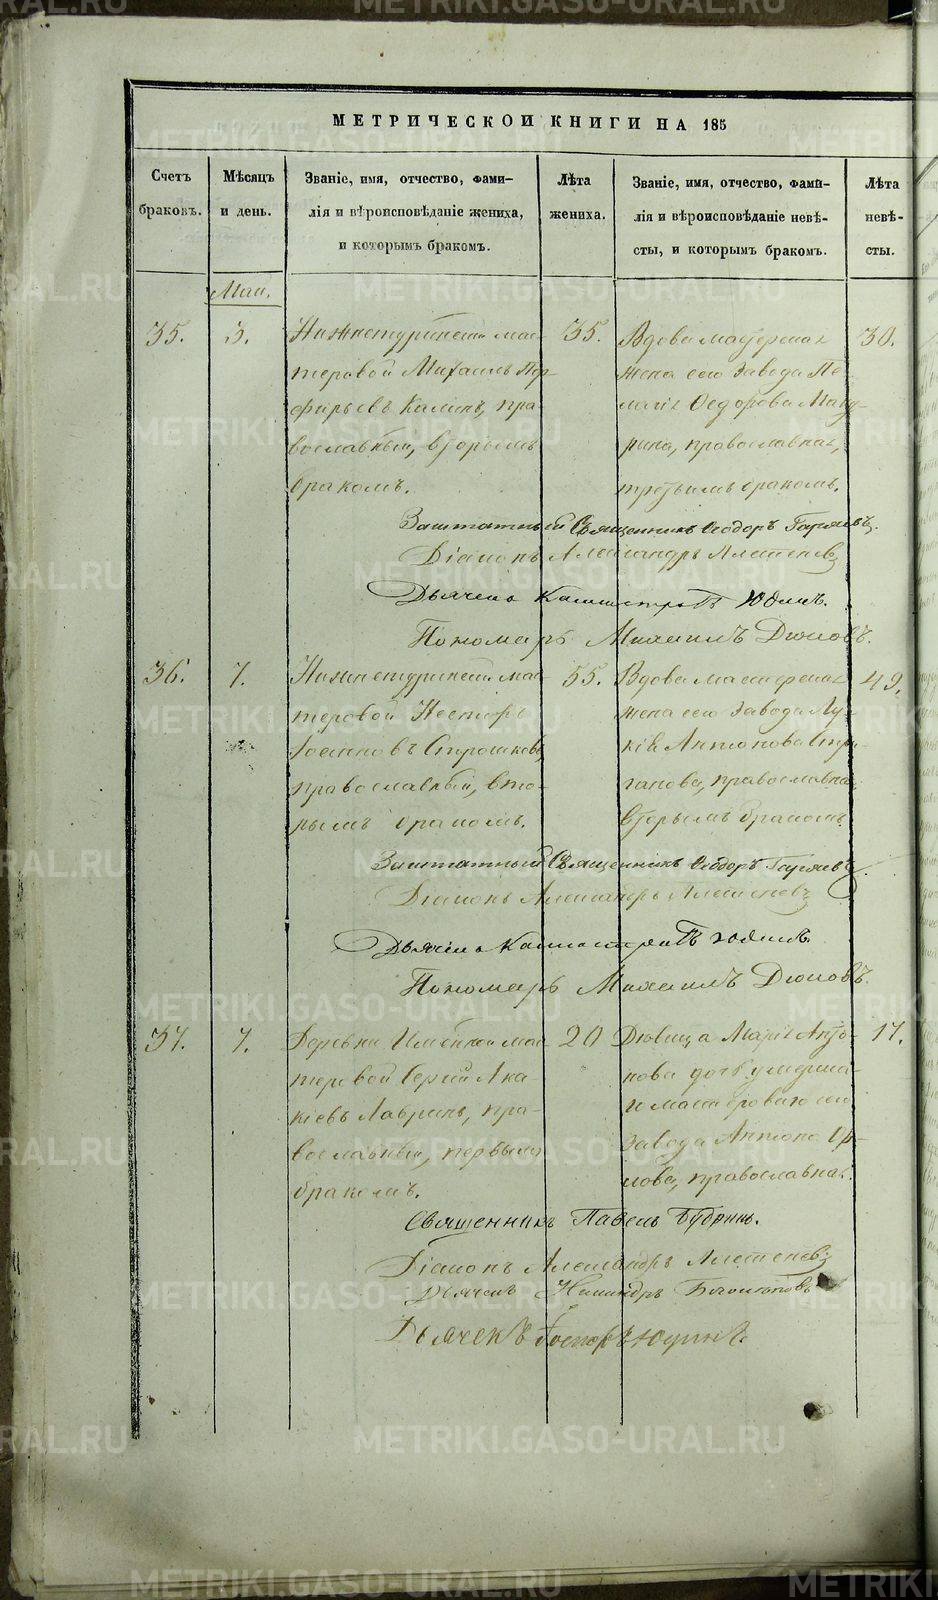 МЕТРИЧЕСКОЙ КНИГИ НА 185
Счетъ браковъ.
Мѣсяцъ и день.
Званіе, имя, отчество, фами-
лія и вѣроисповѣданіе жениха,
и которымъ бракомъ.
Лѣта жениха.
Званіе, имя, отчество, фами-
лія и вѣроисповѣданіе невѣ-
сты, и которымъ бракомъ.
Лѣта невѣ-
сты.
Маи.
35.
3.
Нижнетуринскій мас-
теровой Михаилъ Пор-
фирьевъ Калинъ, пра-
вославный, вторымъ
бракомъ.
35.
Вдова мастерская
жена сего завода Пе-
лагія Федорова Маку-
рина, православная,
третьимъ бракомъ.
30.
Заштатный Священникъ Ѳеодоръ
Діаконъ Александръ
Дьячекъ Каллистратъ Юдинъ.
Пономарь Михаилъ Дюковъ.
36.
7.
Нижнетуринскій мас-
теровой Несторъ
православный, вто-
рымъ бракомъ.
55.
Вдова мастерская
жена сего завода Лу-
кія Антонова Стри-
ганова, православная
вторымъ бракомъ.
49.
Заштатный Священникъ Ѳеодоръ
Діаконъ Александръ
Дьячекъ Каллистратъ Юдинъ.
Пономарь Михаилъ Дюковъ.
37.
7.
Деревни Именной мас-
теровой Сергій Ака-
кіевъ Лавринъ, пра-
вославный, первымъ
бракомъ.
20
Дѣвица Марія Анто-
нова дочь умерша-
го мастероваго сего
завода Антона Ор-
лова, православная.
17.
Священникъ Павелъ Будринъ.
Діаконъ Александръ
Дьячекъ Никандръ
Дьячекъ Юдинъ.
METRIKI.GASO-URAL.RU